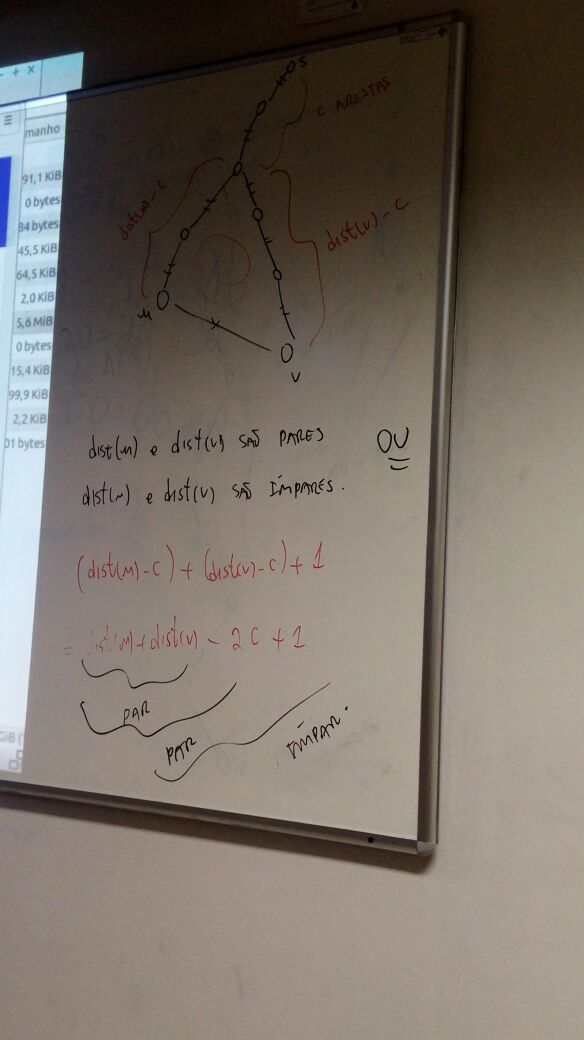 - + x
≡
manho
91,1 KiB
0 bytes
94 bytes
45,5 KiB
64,5 KiB
2,0 KiB
5,6 MiB
0 bytes
15,4 KiB
99,9 KiB
2,2 KiB
01 bytes
GiB (
S
C ARESTAS
dist(u) - C
dist(v) - C
u
v
dist(u) e dist(v) SÃO PARES OU
dist(u) e dist(v) SÃO ÍMPARES.
(dist(u) - C) + (dist(v) - C) + 1
= dist(u) + dist(v) - 2C + 1
PAR
PAR
ÍMPAR.